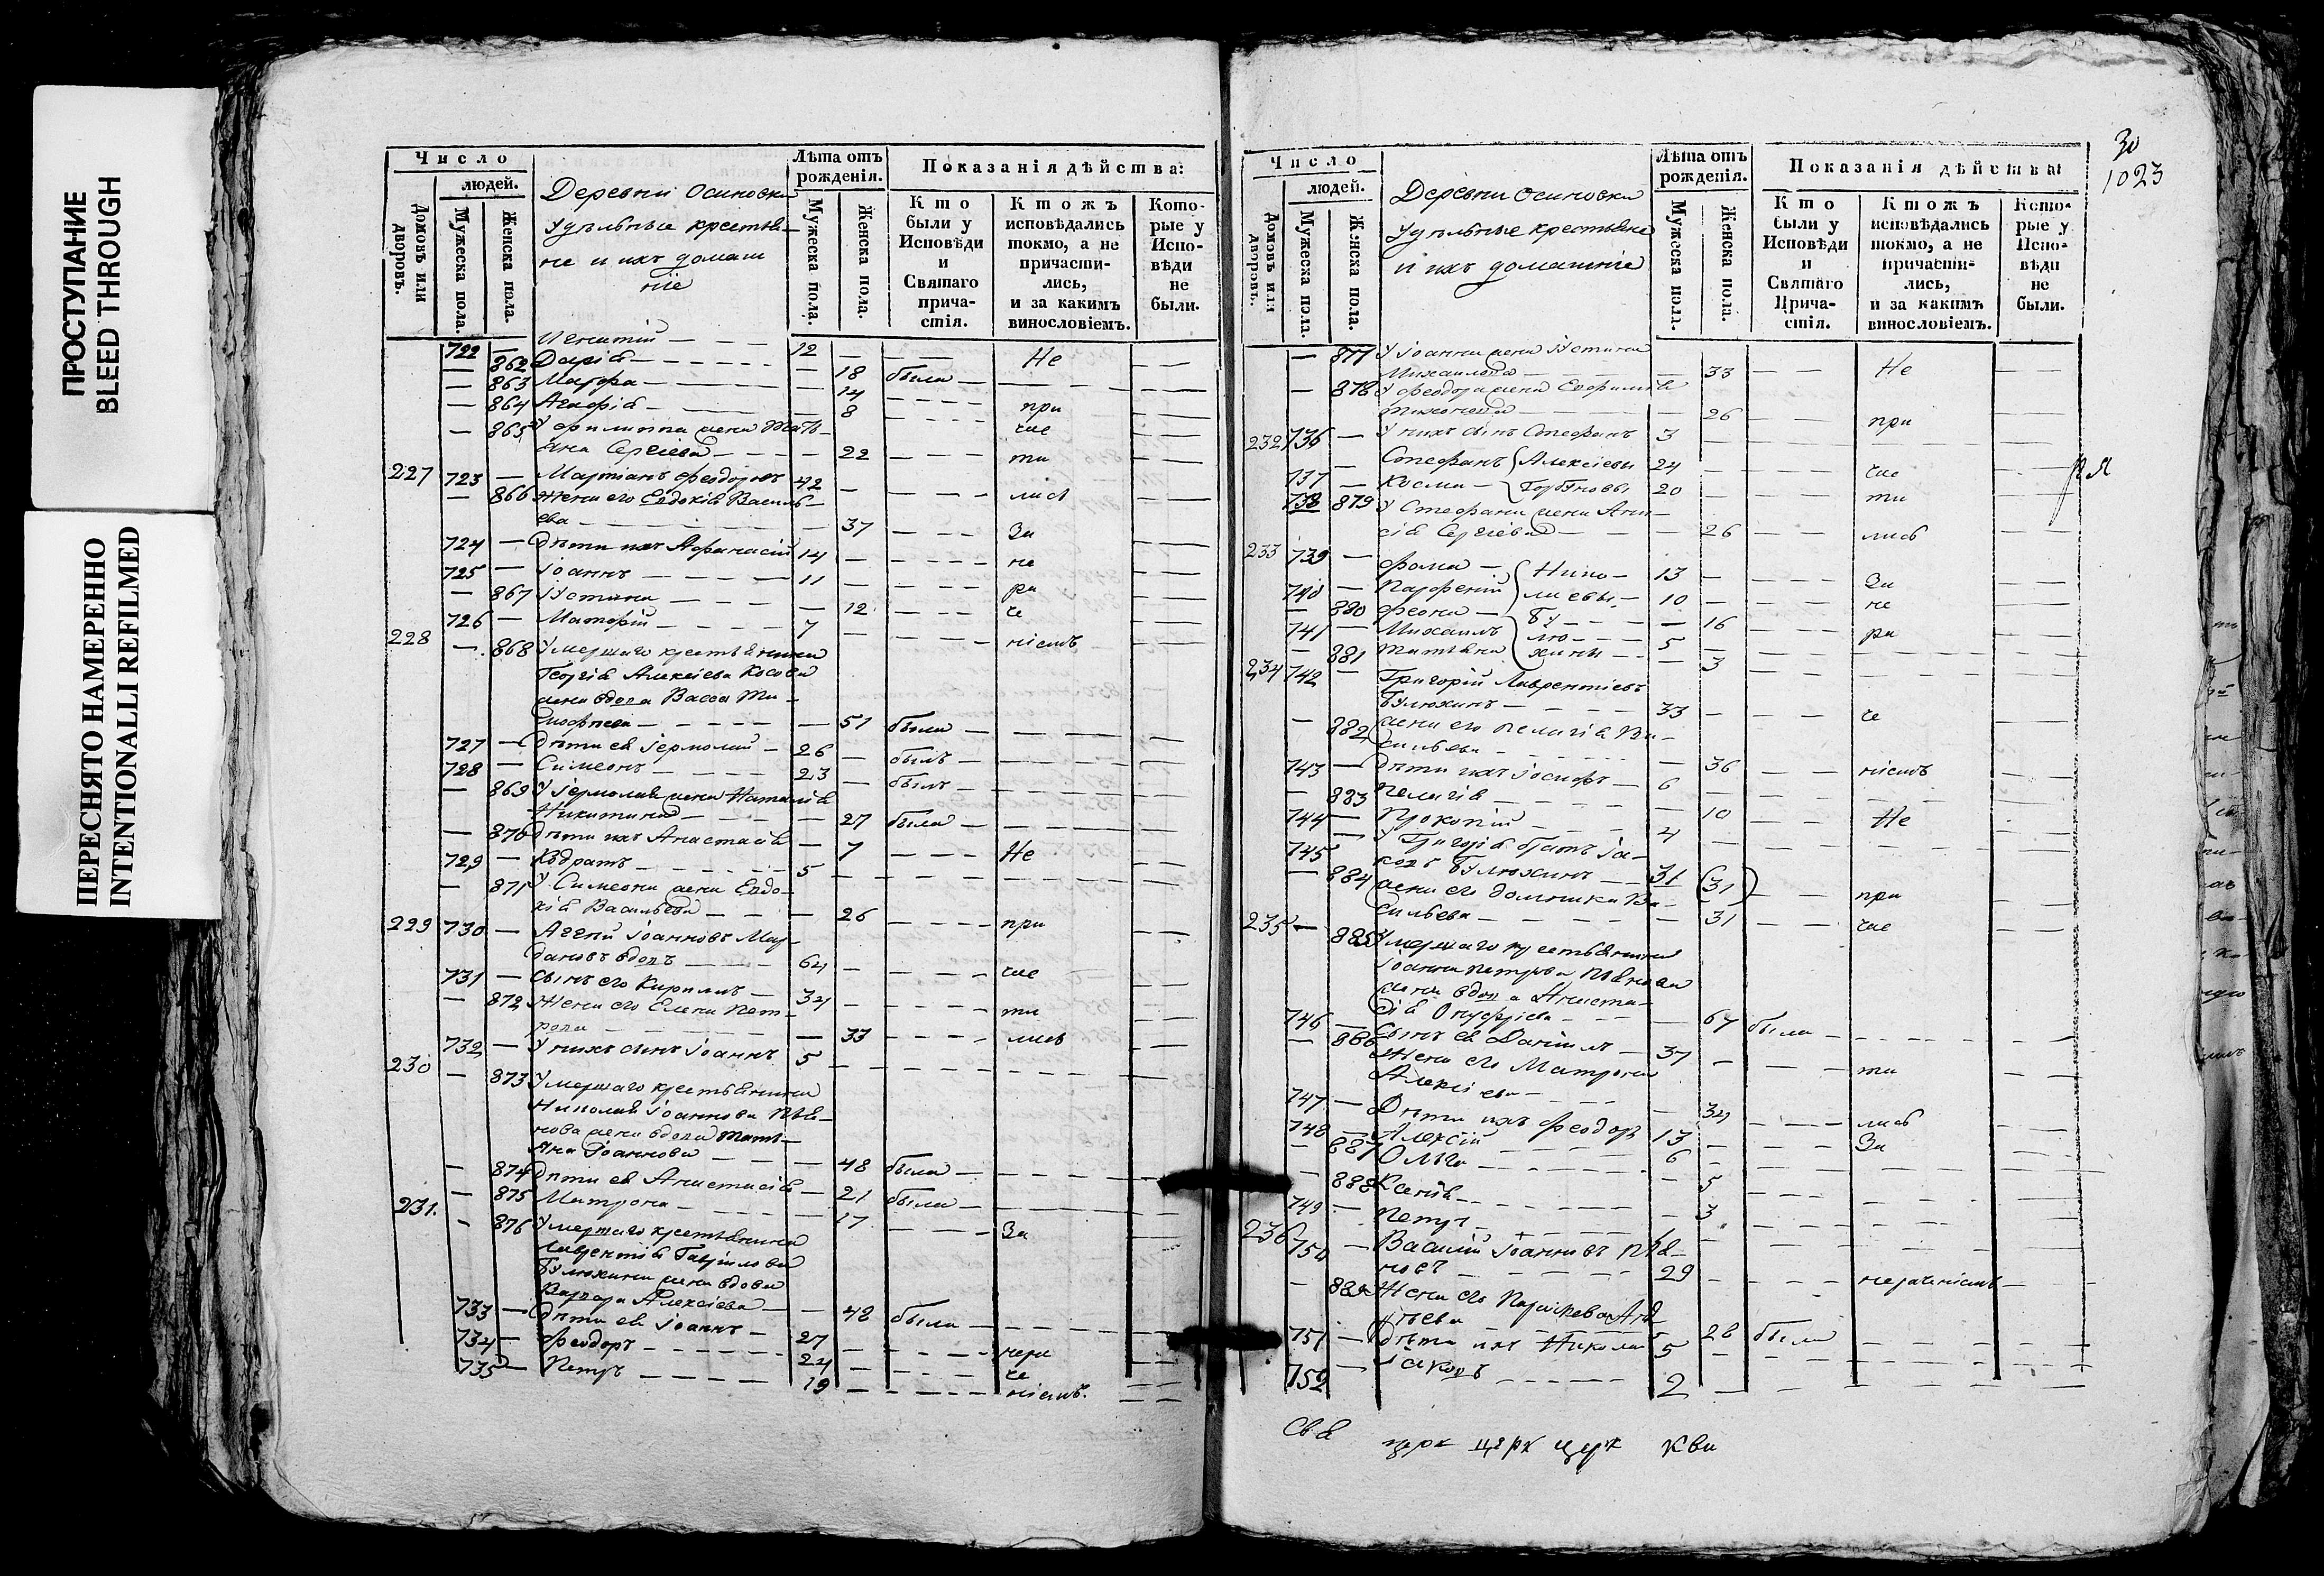 ПРОСТУПАНИЕ
BLEED THROUGH
ПЕРЕСНЯТО НАМЕРЕННО
INTENTIONALLI REFILMED
Число
людей.
Домовъ или дворовъ.
Мужеска пола.
Женска пола.
Деревни Осиновки
удѣльные крестья-
не и ихъ домаш
ніе
Лѣта отъ рожденія.
Мужеска пола.
Женска пола.
Показанія дѣйства:
Кто были у Исповѣди и Святаго причастія.
Ктожъ исповѣдались токмо, а не причастились, и за какимъ винословіемъ.
Которые у Исповѣди не были.
722 — Игнатій — 12 — Не
— 862 Дарія — 18 была
— 863 Марфа — 14
— 864 Агафія — 8 при
— 865 У Филиппа жена Татья- чис
ана Сергіева — 22 ти
227 723 — Мартіанъ Феодоровъ 42
— 866 Жена его Евдокія Василь- лись
ева — 37 За
724 — Дѣти ихъ Афанасій 14 не
725 — Іоаннъ — 11
— 867 Устинья — 12 ра
726 — Матфій — 7 че
228 — 868 Умершаго крестьянина ніемъ
Георгія Алексіева Косова
жена вдова Васса Ти-
мофеева — 51 была
727 — Дѣти ея Іермолай — 26 былъ
728 — Симеонъ — 23 былъ
— 869 У Іермолая жена Наталія
Никитина — 27 была
— 870 Дѣти ихъ Анастасія — 7 Не
729 — Кодратъ — 5
— 871 У Симеона жена Евдо-
кія Васильева — 26 при
229 730 — Аггей Іоанновъ Мар-
дановъ вдовъ — 64 чис
731 — Сынъ его Кириллъ — 34
— 872 Жена его Елена Пет- ти
рова — 33 лись
732 — У нихъ сынъ Іоаннъ 5
230 — 873 Умершаго крестьянина
Николая Іоаннова Пья-
нова жена вдова Татья-
яна Іоаннова — 48 была
— 874 Дѣти ея Анастасія — 21 была
— 875 Матрона — 17 За
231. — 876 Умершаго крестьянина
Лаврентія Гаврилова
Булюхина жена вдова
Варвара Алексіева — 48 была
733 — Дѣти ея Іоаннъ — 27 нера
734 — Феодоръ — 24 че
735 — Петръ — 19 ніемъ.
30
1023
Число
людей.
Домовъ или дворовъ.
Мужеска пола.
Женска пола.
Деревни Осиновки
удѣльные крестьяне
и ихъ домашніе
Лѣта отъ рожденія.
Мужеска пола.
Женска пола.
Показанія дѣйства:
Кто были у Исповѣди и Святаго Причастія.
Ктожъ исповѣдались токмо, а не причастились, и за какимъ винословіемъ.
Которые у Исповѣди не были.
— 877 У Іоанна жена Устинья
Михаилова — 33 Не
— 878 У Феодора жена Евфимія
Тихонова — 26 при
232 736 — У нихъ сынъ Стефанъ 3
Стефанъ Алексіевы 24 чис
737 — Косма — Горбуновы 20 ти
738 879 У Стефана жена Ани-
сія Сергіева — 26 лись
233 739 — Фома — Нико- 13 За
740 — Парфеній лаевы — 10 не
— 880 Феона — Бу — 16
741 — Михаилъ лю — 5 ра
— 881 Татьяна хины — 3
234 742 — Григорій Лаврентіевъ
Булюхинъ — 33 че
882 жена его Пелагія Ва-
сильева — 36 ніемъ
743 — Дѣти ихъ Іосифъ — 6
— 883 Пелагія — 10 Не
744 — Прокопій — 4
745 — У Григорія братъ Іа-
ковъ Булюхинъ — 31 (31) при
— 884 жена его Домника Ва-
сильева — 31 чис
235 — 885 Умершаго крестьянина
Іоанна Петрова Пьянова
жена вдова Анаста-
сія Онуфріева — 67 была
746 — Сынъ ея Даніилъ — 37
— 886 Жена его Матрона ти
Алексіева — 34 лись
747 — Дѣти ихъ Феодоръ 13 За
748 — Алексій — 6
— 887 Ольга — 5
— 888 Ксенія — 3
749 — Петръ — 1
236 750 — Василій Іоанновъ Пья-
новъ — 29 нераченіемъ
— 889 Жена его Параскева
28 была
751 — Дѣти ихъ Николай 5
752 — Іаковъ — 2
церк церк церк